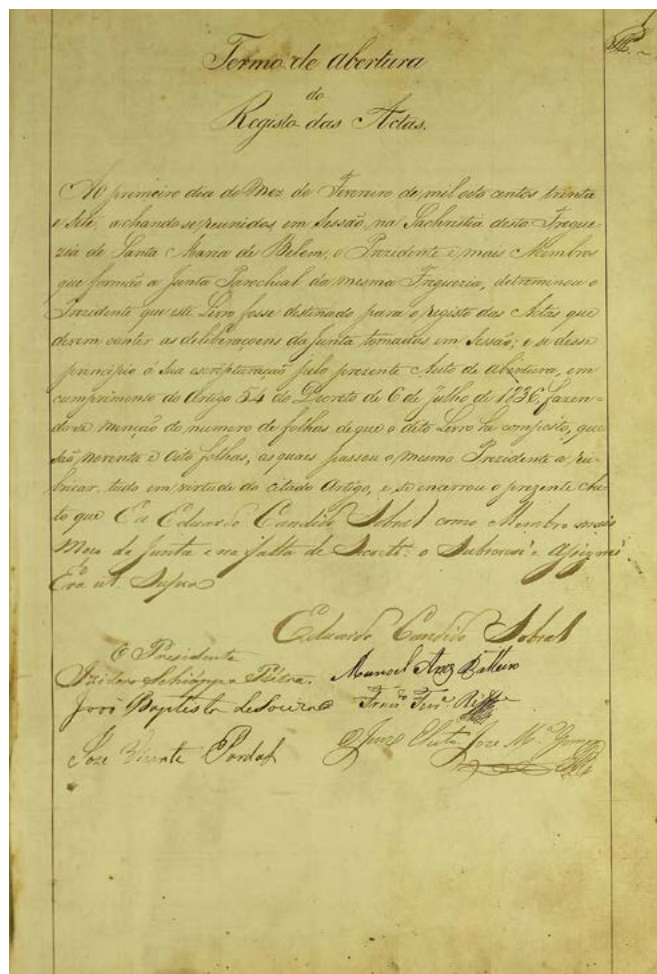 Termo de Abertura
do
Registo das Actas.
Ao primeiro dia do Mez de Fevereiro de mil oito centos trinta
e Sete, achando se reunidos em Sessão, na Sachristia desta Fregue-
zia de Santa Maria de Belem, o Prezidente e mais Membros
que formão a Junta Parochial da mesma Freguezia, determinou o
Prezidente que este Livro fosse destinado para o registo das Actas que
devem conter as deliberaçoens da Junta tomadas em Sessão; e se desse
principio á sua escripturação pelo prezente Auto de Abertura, em
cumprimento do Artigo 54 do Decreto de 6 de Julho de 1836, fazen-
do se menção do numero de folhas de que o dito Livro he composto, que
são noventa e oito folhas, as quaes passou o mesmo Prezidente a ru-
bricar, tudo em virtude do citado Artigo, e se encerrou o prezente Au-
to que Eu Eduardo Candido Sobral como Membro mais
Moço da Junta e na falta de Secret.º o Subscrevi e Assignei
Era ut Supra
Eduardo Candido Sobral
O Presidente
Manoel
João Baptista de Souza
Joze Vicente
O Juiz Eleito Joze M.ª Gomes